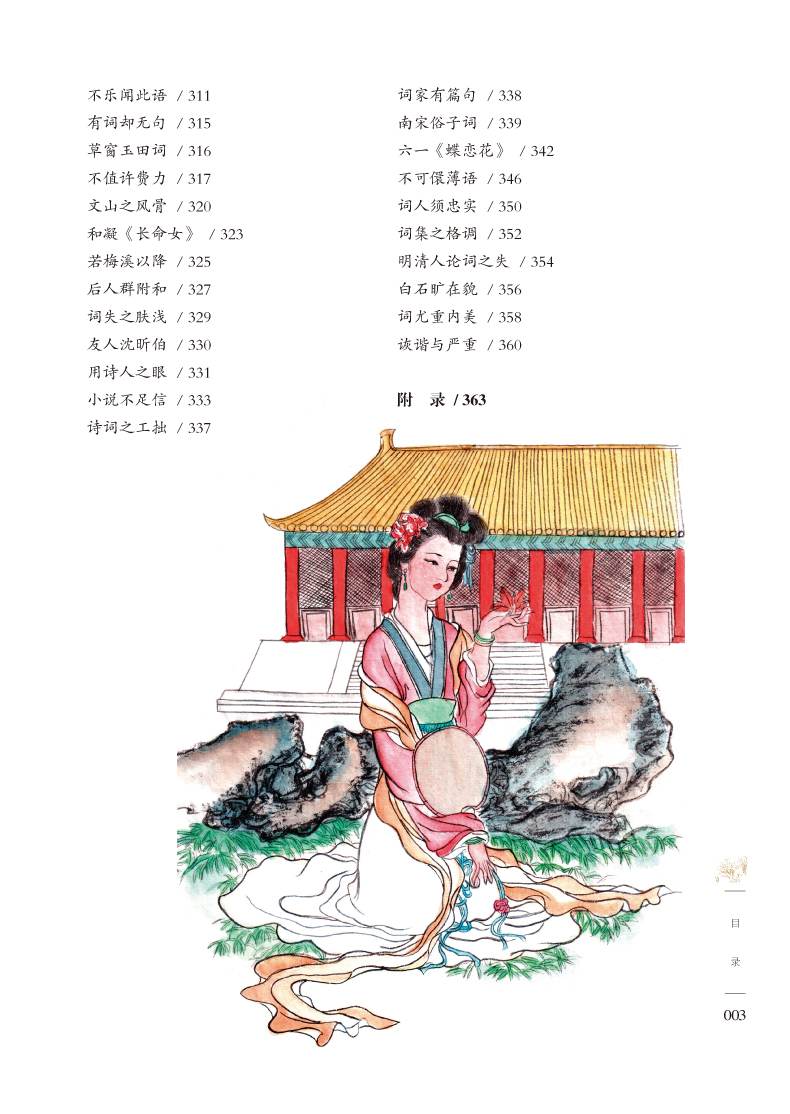 不乐闻此语 / 311
有词却无句 / 315
草窗玉田词 / 316
不值许费力 / 317
文山之风骨 / 320
和凝《长命女》 / 323
若梅溪以降 / 325
后人群附和 / 327
词失之肤浅 / 329
友人沈昕伯 / 330
用诗人之眼 / 331
小说不足信 / 333
诗词之工拙 / 337
词家有篇句 / 338
南宋俗子词 / 339
六一《蝶恋花》 / 342
不可儇薄语 / 346
词人须忠实 / 350
词集之格调 / 352
明清人论词之失 / 354
白石旷在貌 / 356
词尤重内美 / 358
诙谐与严重 / 360
附 录 / 363
目
录
003